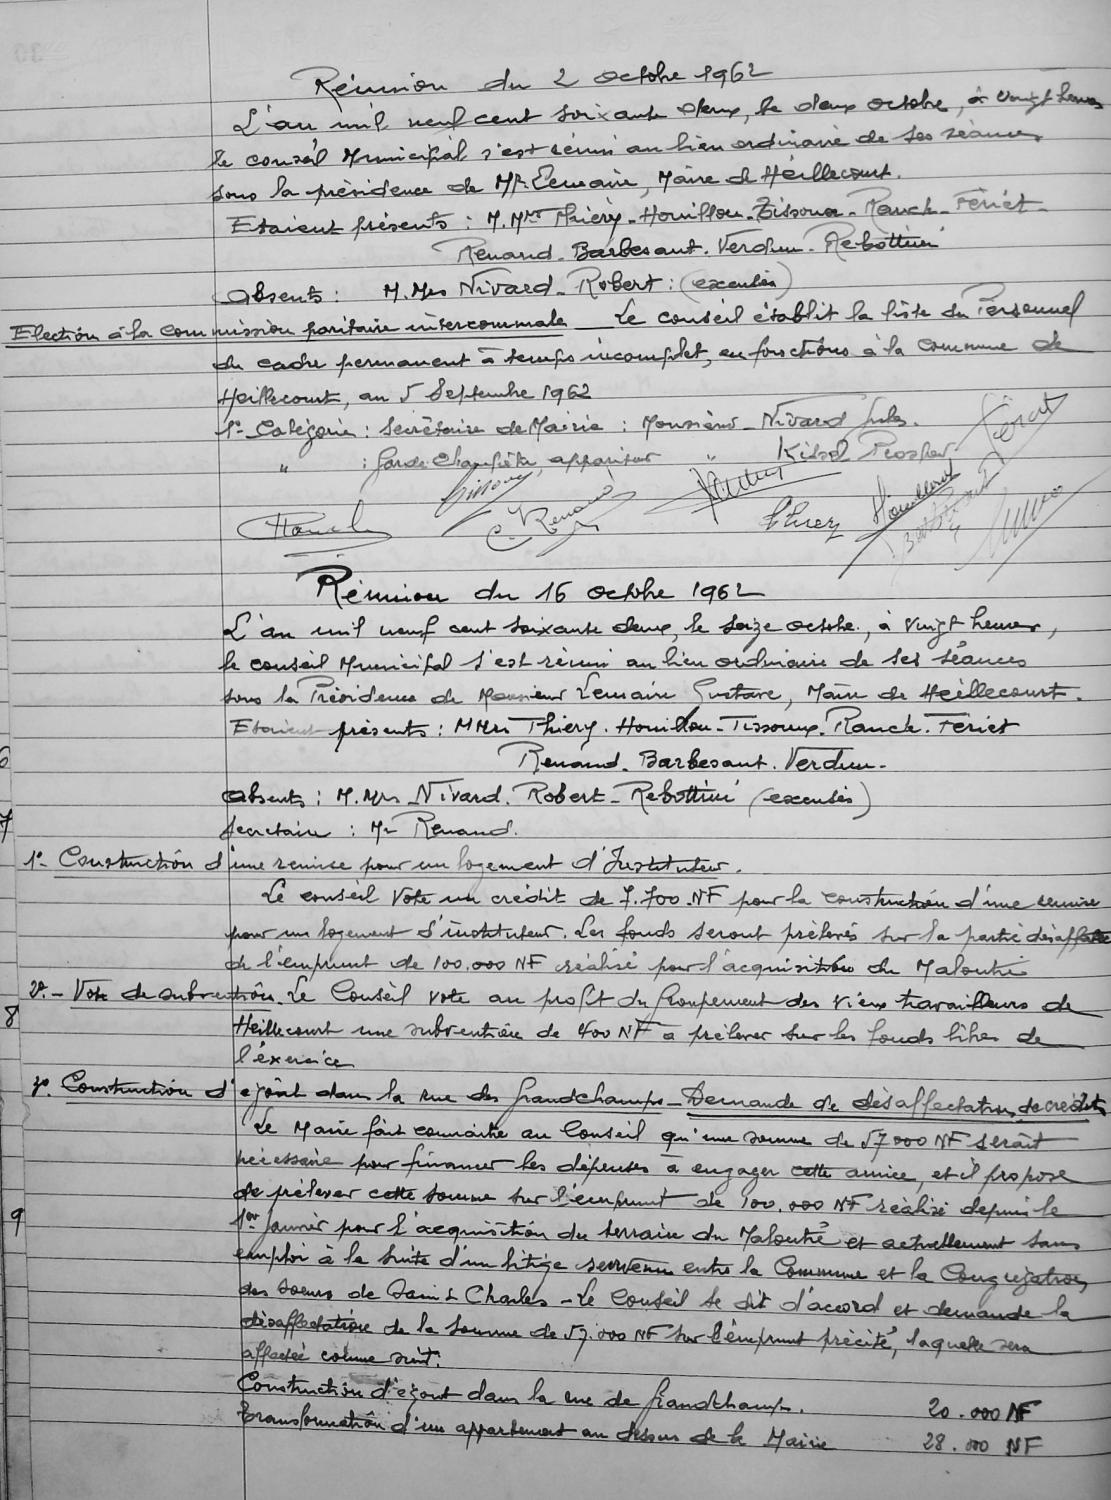 Réunion du 2 octobre 1962
L'an mil neuf cent soixante deux, le deux octobre, à vingt heures
le conseil Municipal s'est réuni au lieu ordinaire de ses séances
sous la présidence de Mr Lemaire, Maire de Heillecourt.
Etaient présents : M.Mrs Thiéry - Houillon - Tissoux - Ranck - Fériet -
Renand - Barbesant - Verdun - Rebottini
Absents : M.Mrs Nivard - Robert : (excusés)
Election à la commission paritaire intercommunale _ Le conseil établit la liste du Personnel
du cadre permanent à temps incomplet, en fonctions à la Commune de
Heillecourt, au 5 Septembre 1962
1° Catégorie : Secrétaire de Mairie : Monsieur Nivard Jules.
" : Garde Champêtre, appariteur " Prosper
Réunion du 16 octobre 1962
L'an mil neuf cent soixante deux, le seize octobre, à vingt heures,
le conseil Municipal s'est réuni au lieu ordinaire de ses séances
sous la Présidence de Monsieur Lemaire Gustave, Maire de Heillecourt.
Etaient présents : MMrs Thiéry - Houillon - Tissoux - Ranck - Fériet
Renand - Barbesant - Verdun -
Absents : M.Mrs Nivard - Robert - Rebottini (excusés)
Secrétaire : Mr Renand.
1° - Construction d'une remise pour un logement d'Instituteur.
Le conseil vote un crédit de 7.700 NF pour la construction d'une remise
pour un logement d'instituteur. Les fonds seront prélevés sur la partie désaffectée
de l'emprunt de 100.000 NF réalisé pour l'acquisition du Maloutré
2° - Vote de subvention. Le Conseil vote au profit du Groupement des Vieux travailleurs de
Heillecourt une subvention de 400 NF à prélever sur les fonds libres de
l'éxercice
3° - Construction d'égout dans la rue des Grandchamps - Demande de désaffectation de crédits
Le Maire fait connaître au Conseil qu'une somme de 57000 NF serait
nécessaire pour financer les dépenses à engager cette année, et il propose
de prélever cette somme sur l'emprunt de 100.000 NF réalisé depuis le
1er Janvier pour l'acquisition du terrain du Maloutré et actuellement sans
emploi à la suite d'un litige survenu entre la Commune et la Congrégation
des soeurs de Saint Charles - Le Conseil se dit d'accord et demande la
désaffectation de la somme de 57.000 NF sur l'emprunt précité, laquelle sera
affectée comme suit:
Construction d'égout dans la rue de Grandchamps. 20.000 NF
transformation d'un appartement au dessus de la Mairie 28.000 NF
6
7
8
9